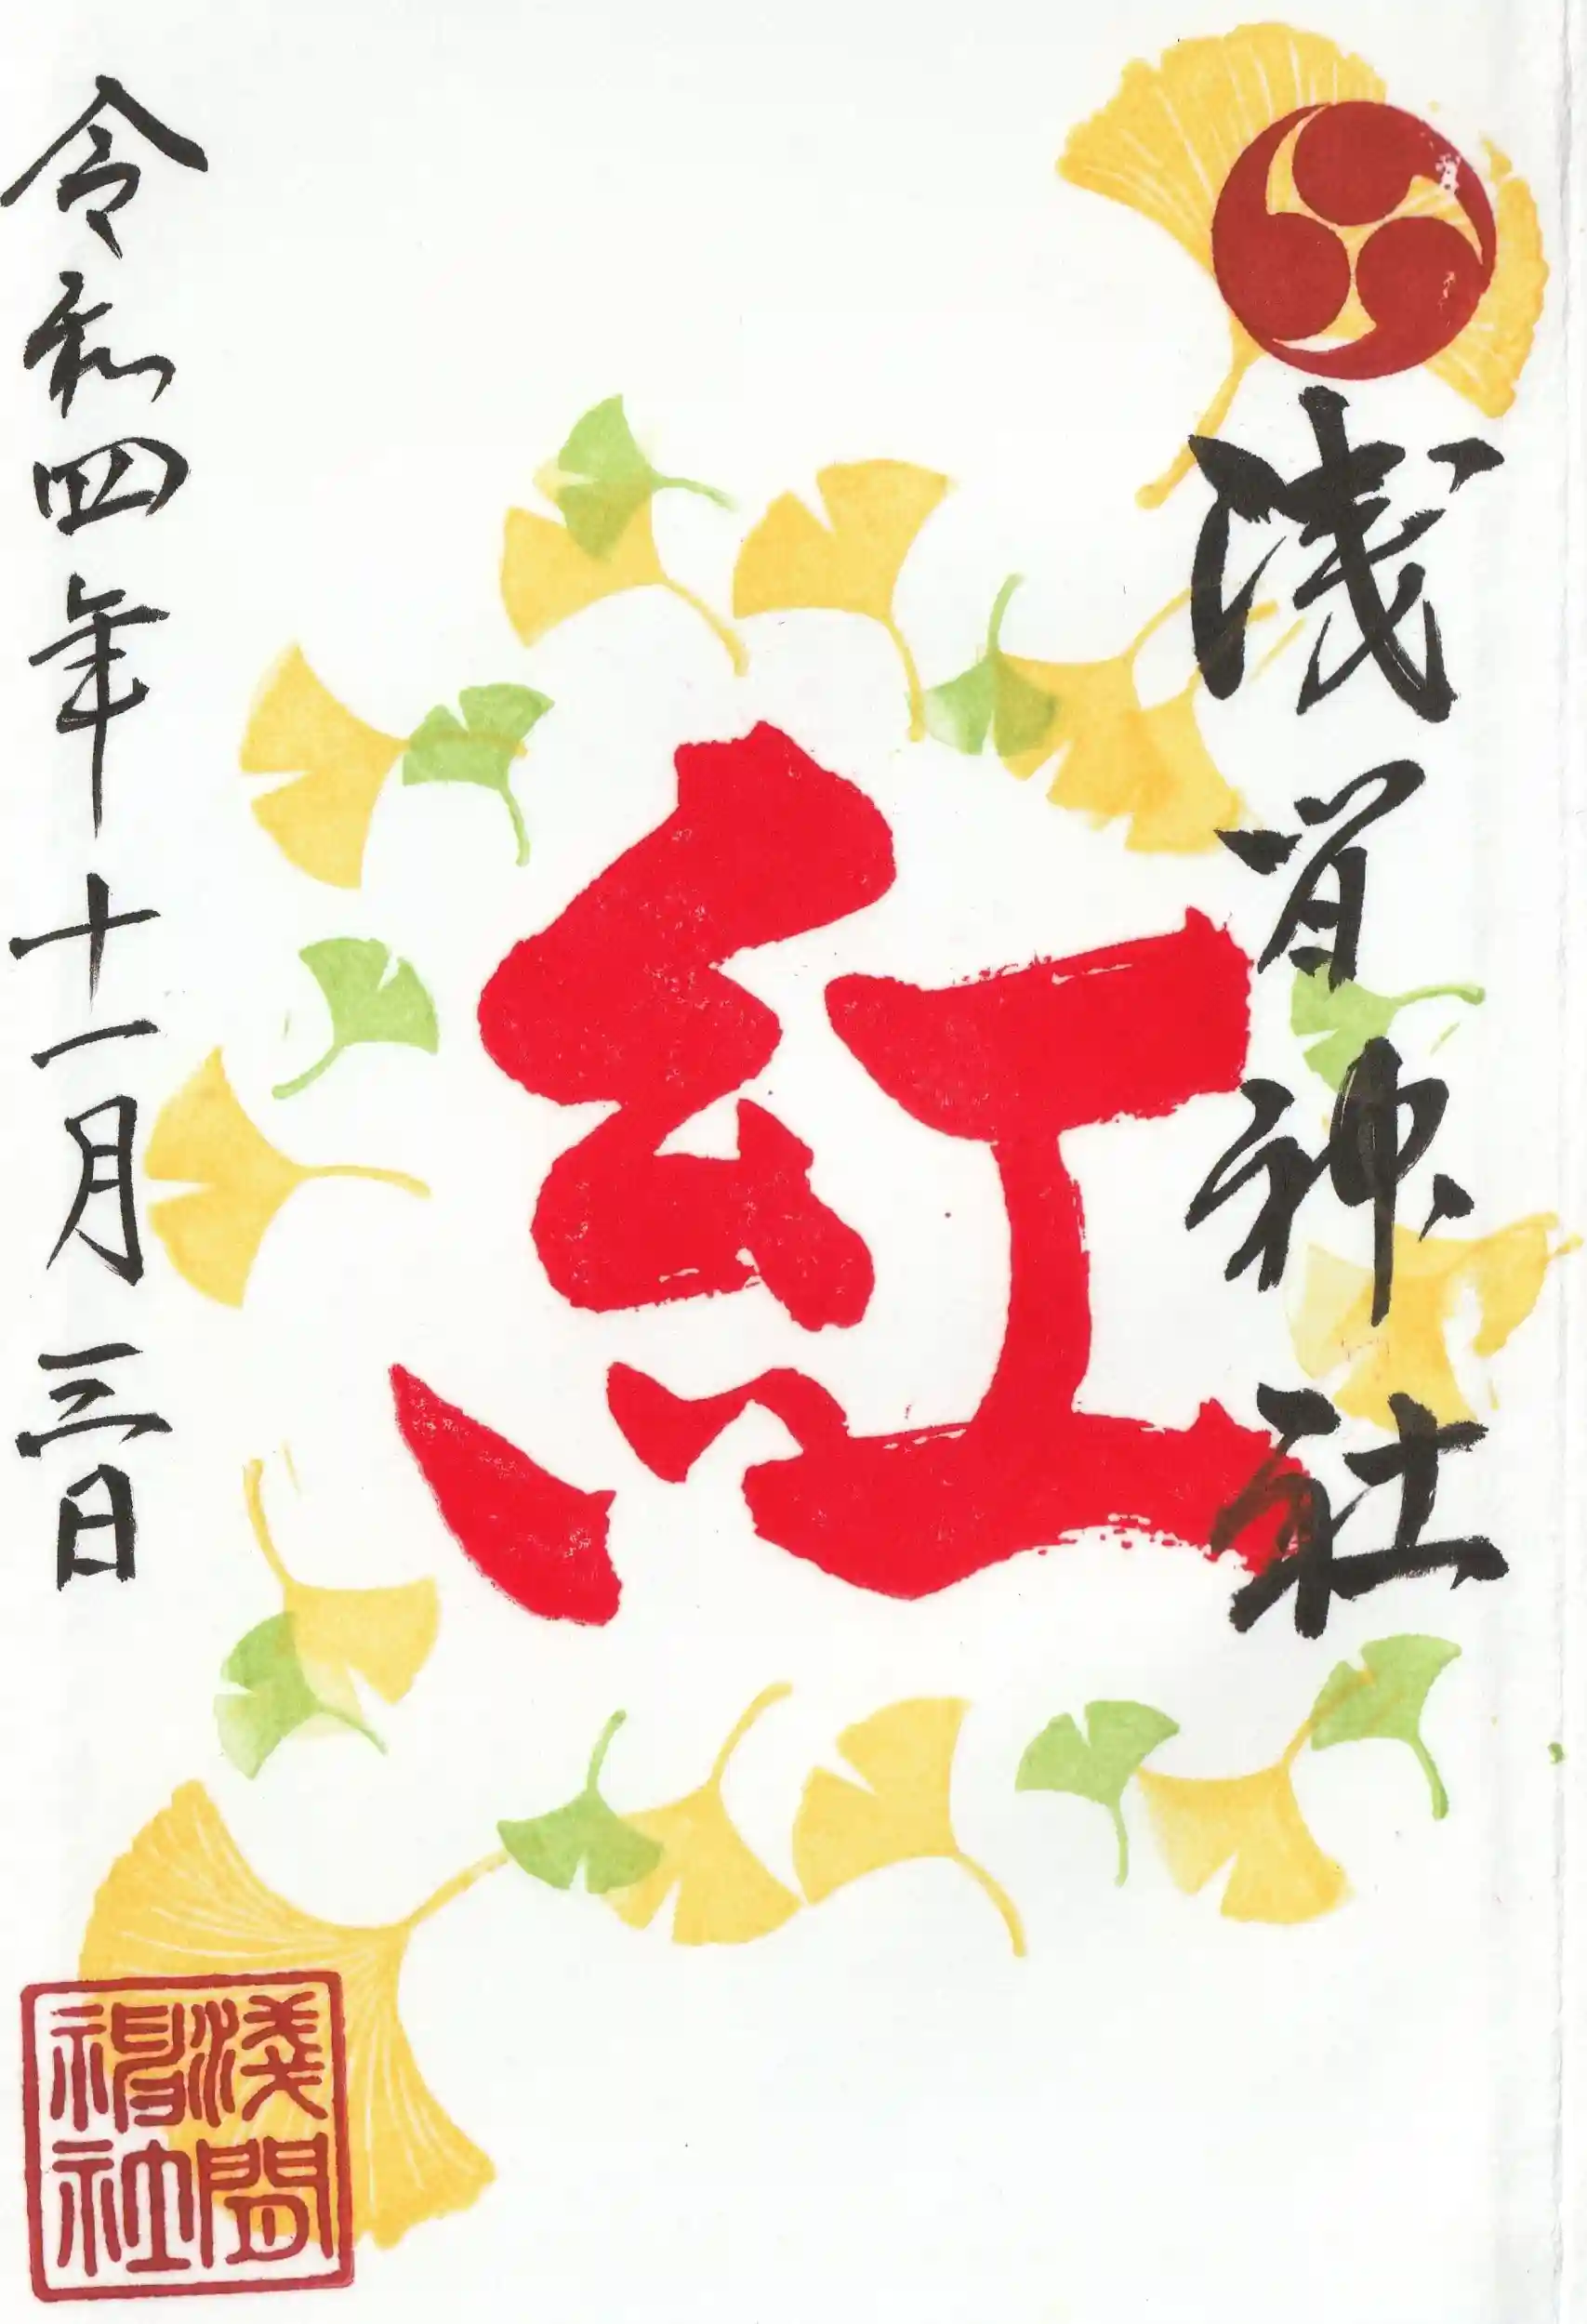 浅间神社
紅
令和四年十一月三日
淺間神社